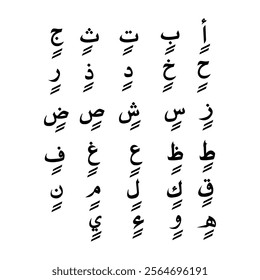 أٍ بٍ تٍ ثٍ جٍ
حٍ خٍ دٍ ذٍ رٍ
زٍ سٍ شٍ صٍ ضٍ
طٍ ظٍ عٍ غٍ فٍ
قٍ كٍ لٍ مٍ نٍ
هٍ وٍ ءٍ يٍ
shutterstock.com · 2564696191